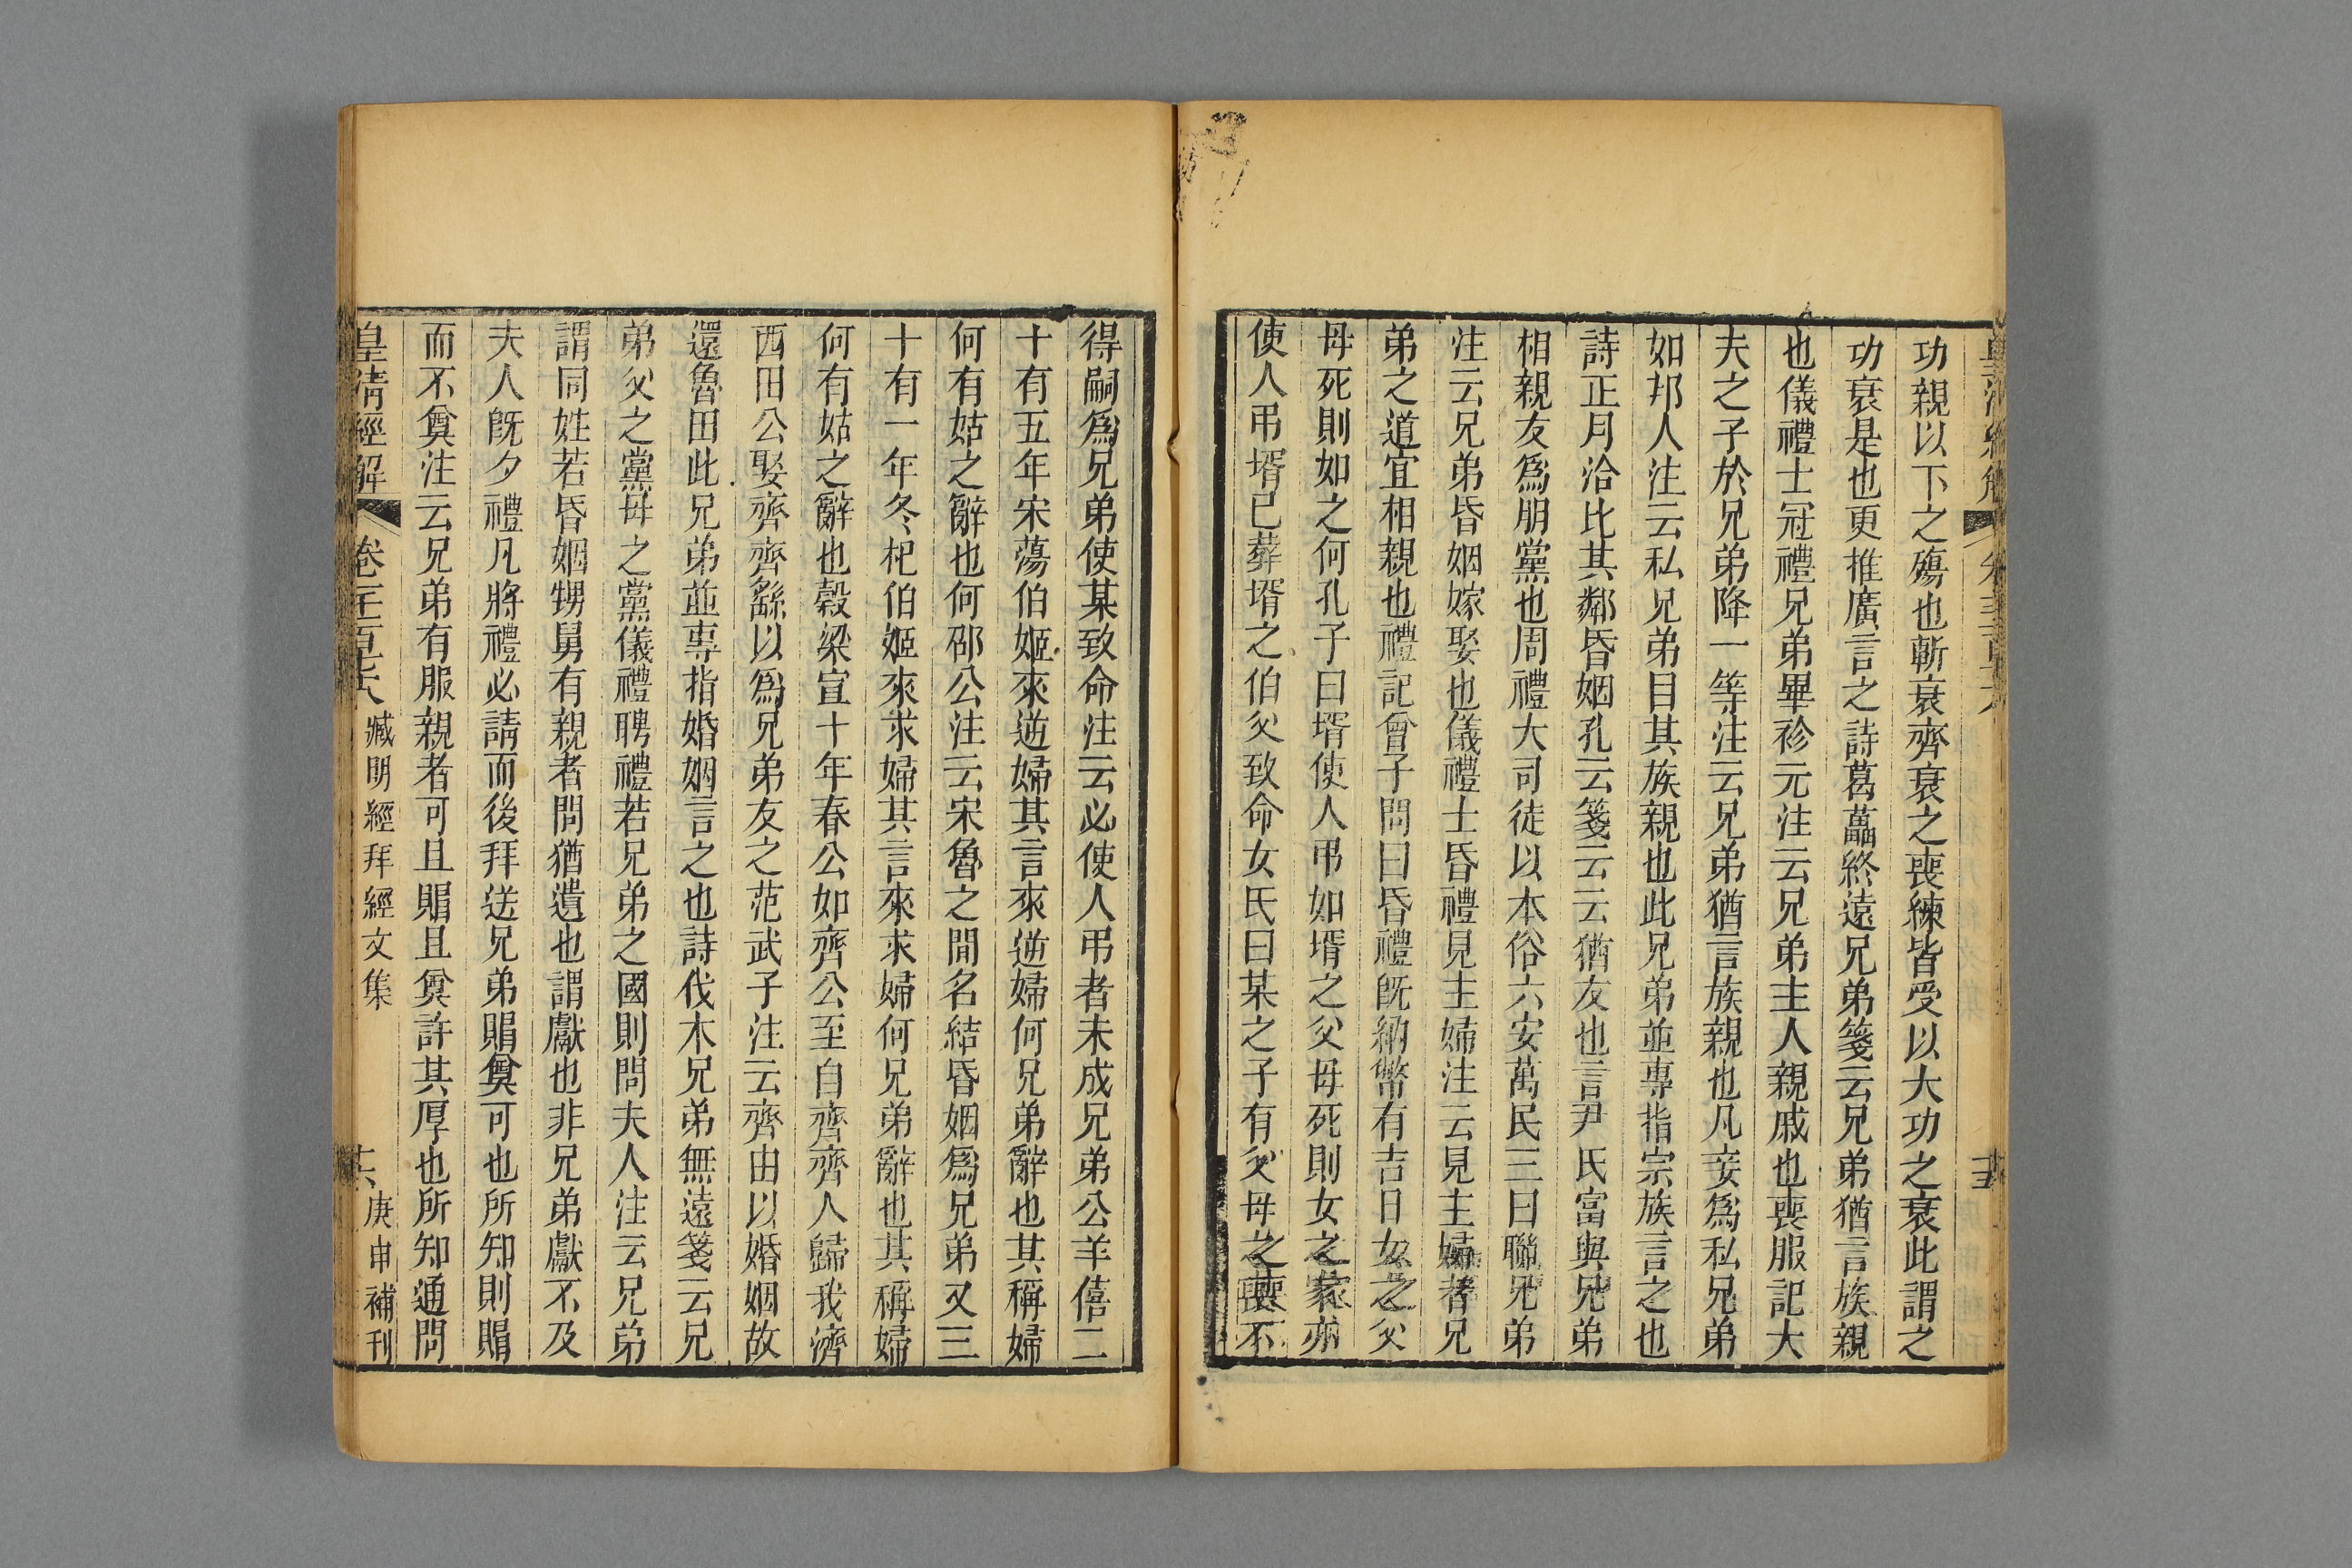 功親以下之殤也斬衰齊衰之喪練皆受以大功之衰此謂之
功衰是也更推廣言之詩葛藟終遠兄弟箋云兄弟猶言族親
也儀禮士冠禮兄弟畢袗元注云兄弟主人親戚也喪服記大
夫之子於兄弟降一等注云兄弟猶言族親也凡妾爲私兄弟
如邦人注云私兄弟目其族親也此兄弟並專指宗族言之也
詩正月洽比其鄰昏姻孔云箋云云猶友也言尹氏富與兄弟
相親友爲朋黨也周禮大司徒以本俗六安萬民三曰聯兄弟
注云兄弟昏姻嫁娶也儀禮士昏禮見主婦注云見主婦者兄
弟之道宜相親也禮記曾子問曰昏禮旣納幣有吉日女之父
母死則如之何孔子曰壻使人弔如壻之父母死則女之家亦
使人弔壻已葬壻之伯父致命女氏曰某之子有父母之喪不
得嗣爲兄弟使某致命注云必使人弔者未成兄弟公羊僖二
十有五年宋蕩伯姬來逆婦其言來逆婦何兄弟辭也其稱婦
何有姑之辭也何邵公注云宋魯之間名結昏姻爲兄弟又三
十有一年冬杞伯姬來求婦其言來求婦何兄弟辭也其稱婦
何有姑之辭也穀梁宣十年春公如齊公至自齊齊人歸我濟
西田公娶齊齊繇以爲兄弟友之范武子注云齊由以婚姻故
還魯田此兄弟並專指婚姻言之也詩伐木兄弟無遠箋云兄
弟父之黨母之黨儀禮聘禮若兄弟之國則問夫人注云兄弟
謂同姓若昏姻甥舅有親者問猶遺也謂獻也非兄弟獻不及
夫人旣夕禮凡將禮必請而後拜送兄弟賵奠可也所知則賵
而不奠注云兄弟有服親者可且賵且奠許其厚也所知通問
皇清經解 卷一千一百七十八 臧明經拜經文集 十六 庚申補刊